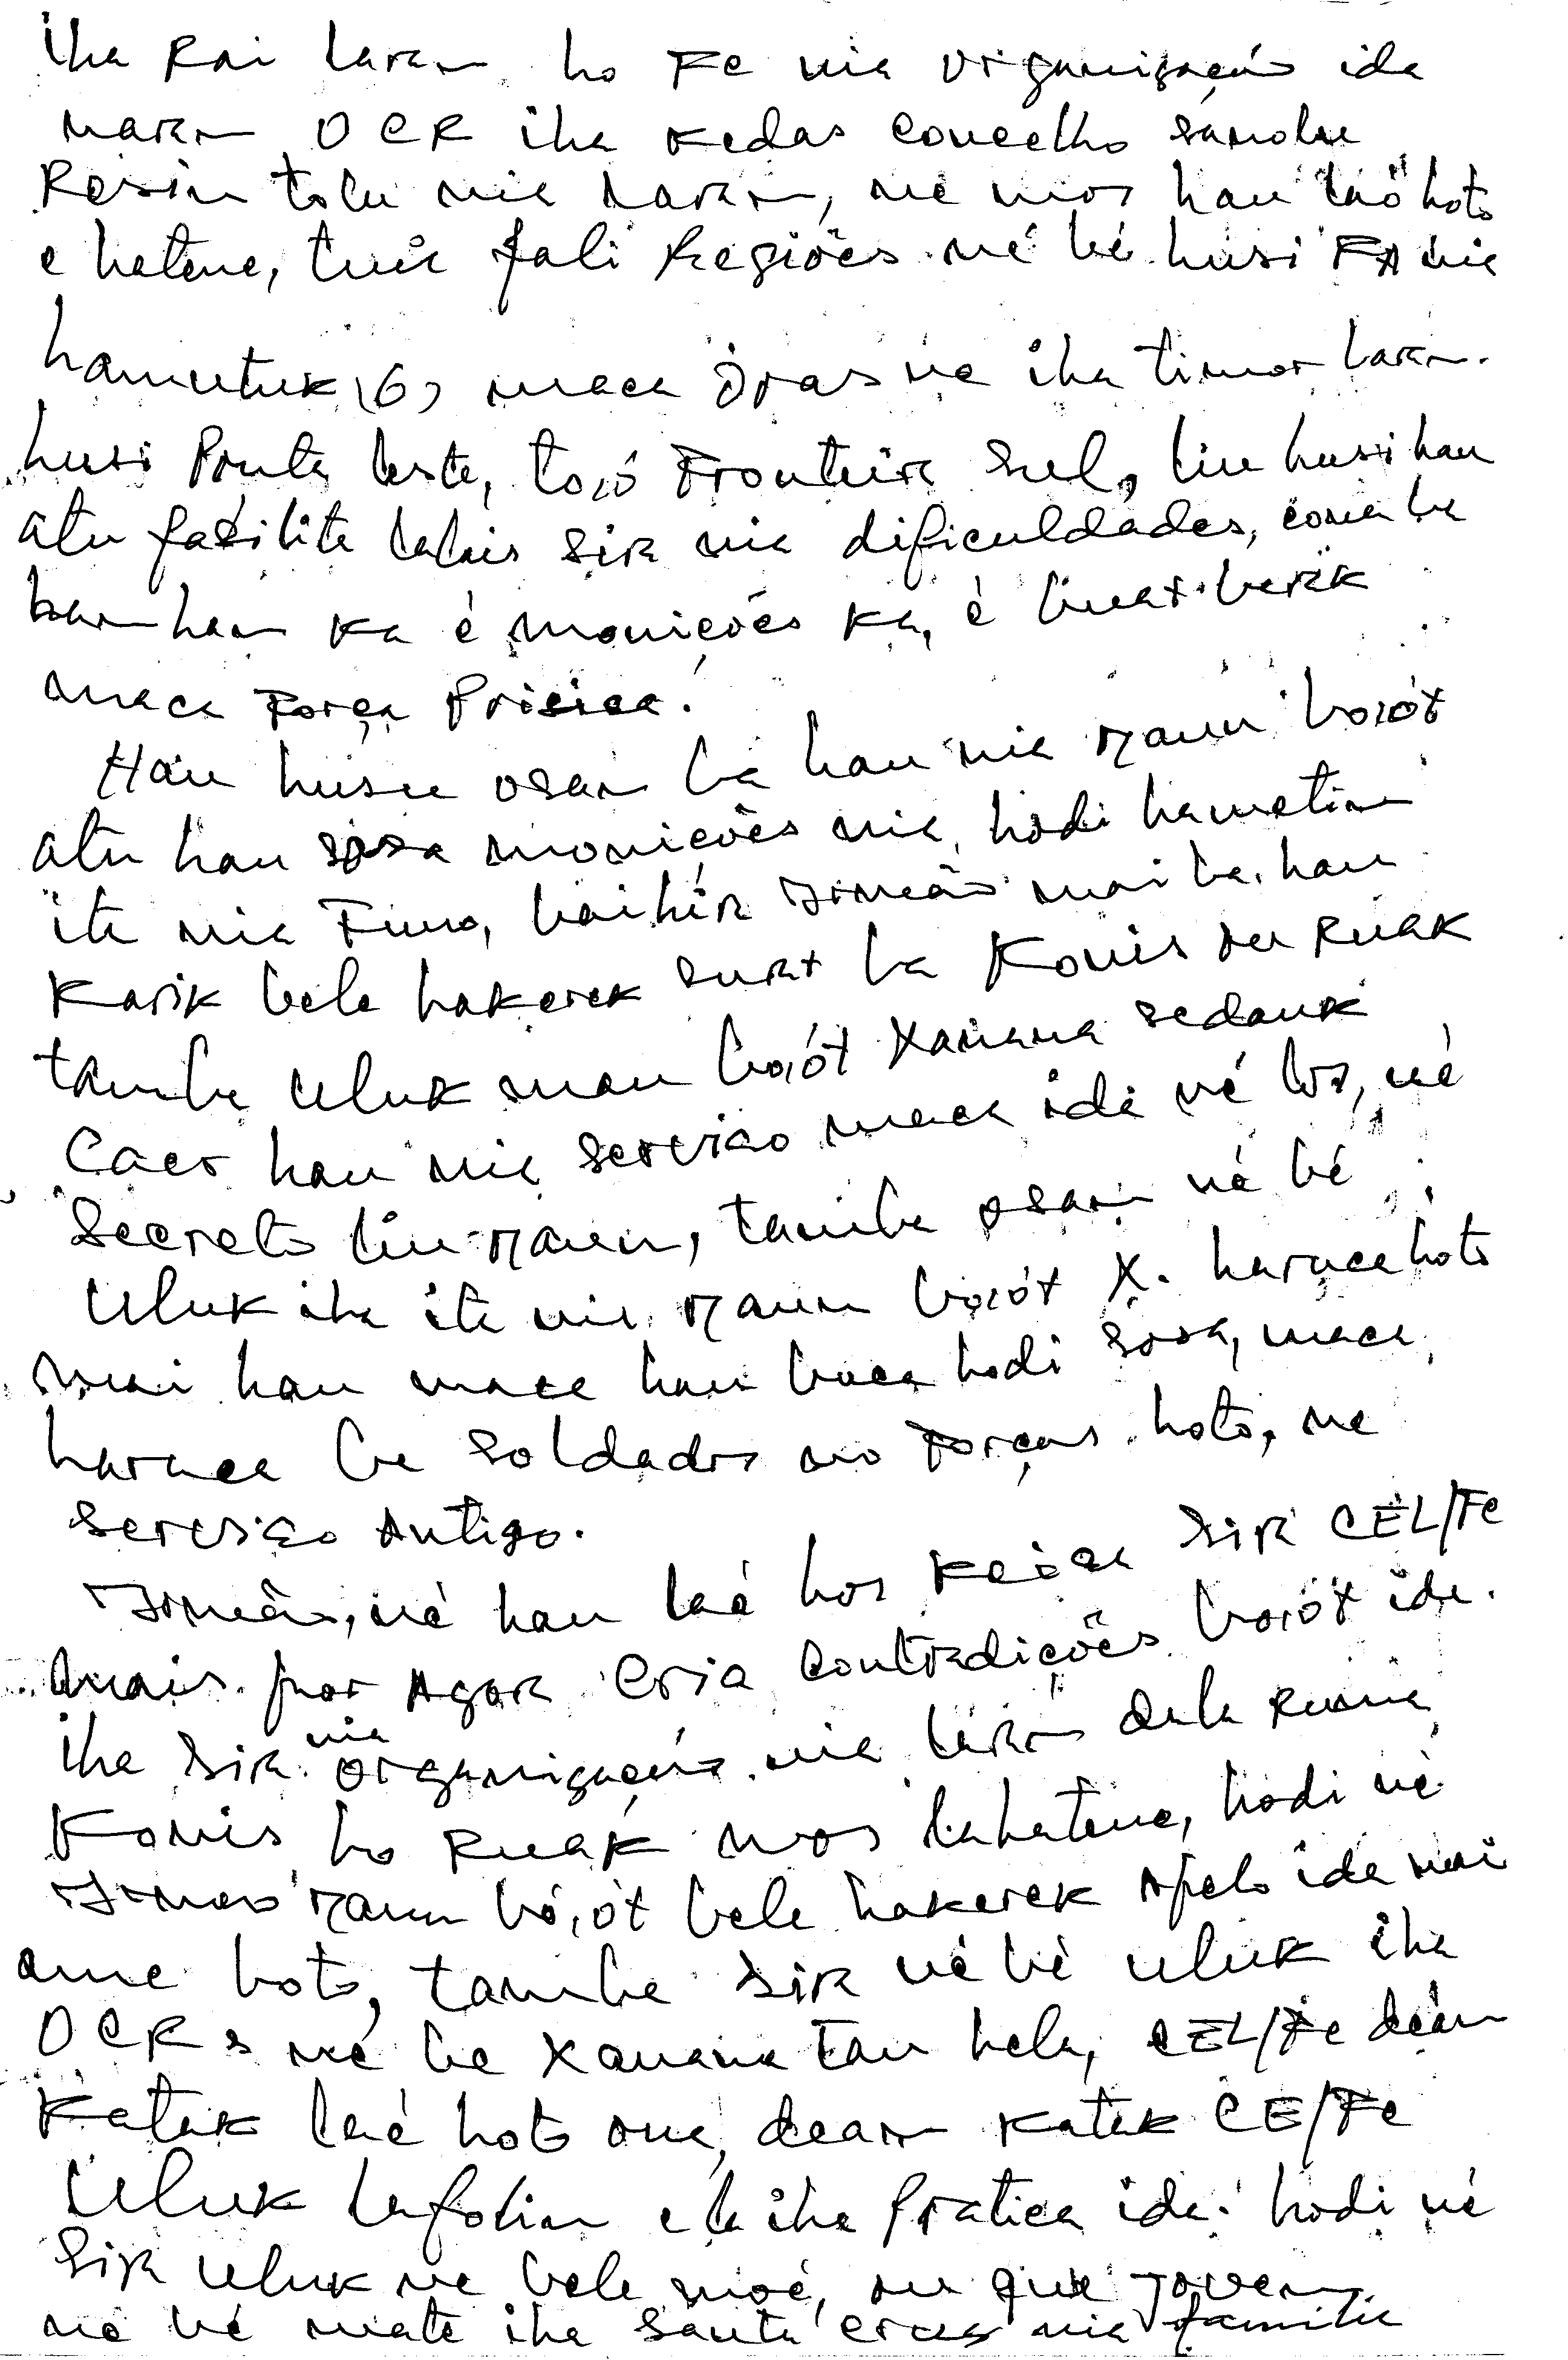 iha Rai laran ho Fe nia organização ida
naran OCR iha kedas concelho sanolu
Resin tolu nia laran, ne mos hau laó hoto
e hatene, tuir fali Regiões né bé husi FA nia
hamutuk (6) maca óras ne iha timor laran.
husi Ponta leste, toió Fronteira sul, liu husi hau
atu fasilita lalais sira nia dificuldades, cona ba
han han ka é monições ka, é buat berák
maca Força Pricica.
Hau husu osan ba hau nia maun boiót
atu hau sosa monições nia, hodi hametin
ita nia Funo, baihira Irmão mai ba hau
Karik bele hakerek surat ba Konis ou Ruak
tamba uluk maun boiót Xanana sedauk
Caer hau nia serviço maca ida né los, né
Secreto liu maun, tamba osan né bé
Uluk iha ita nia maun boiót X. haruca hoto
mai hau maca hau buca hodi sosa, maca
haruca ba soldados no Forças hoto, ne
serviço Antigo.
Irmão, né hau laé hos keixa sira CEL/Fe
mais por Agora cria contradições boiót ida.
iha sira nia organização nia laran dala ruma
Konis ho Ruák mos lahatene, hodi né
Irmao maun bóiót bele hakerek Apelo ida mai
ame hoto, tamba sira né bé uluk iha
OCRs né be Xanana tau hela, CEL/Fe deán
Katak laé hoto ona, dean katak CE/Fe
Uluk lafolin e la iha Pratica ida. hodi né
Sira uluk ne bele moé, ou que joven
né bé mate iha santa cruz nia familia